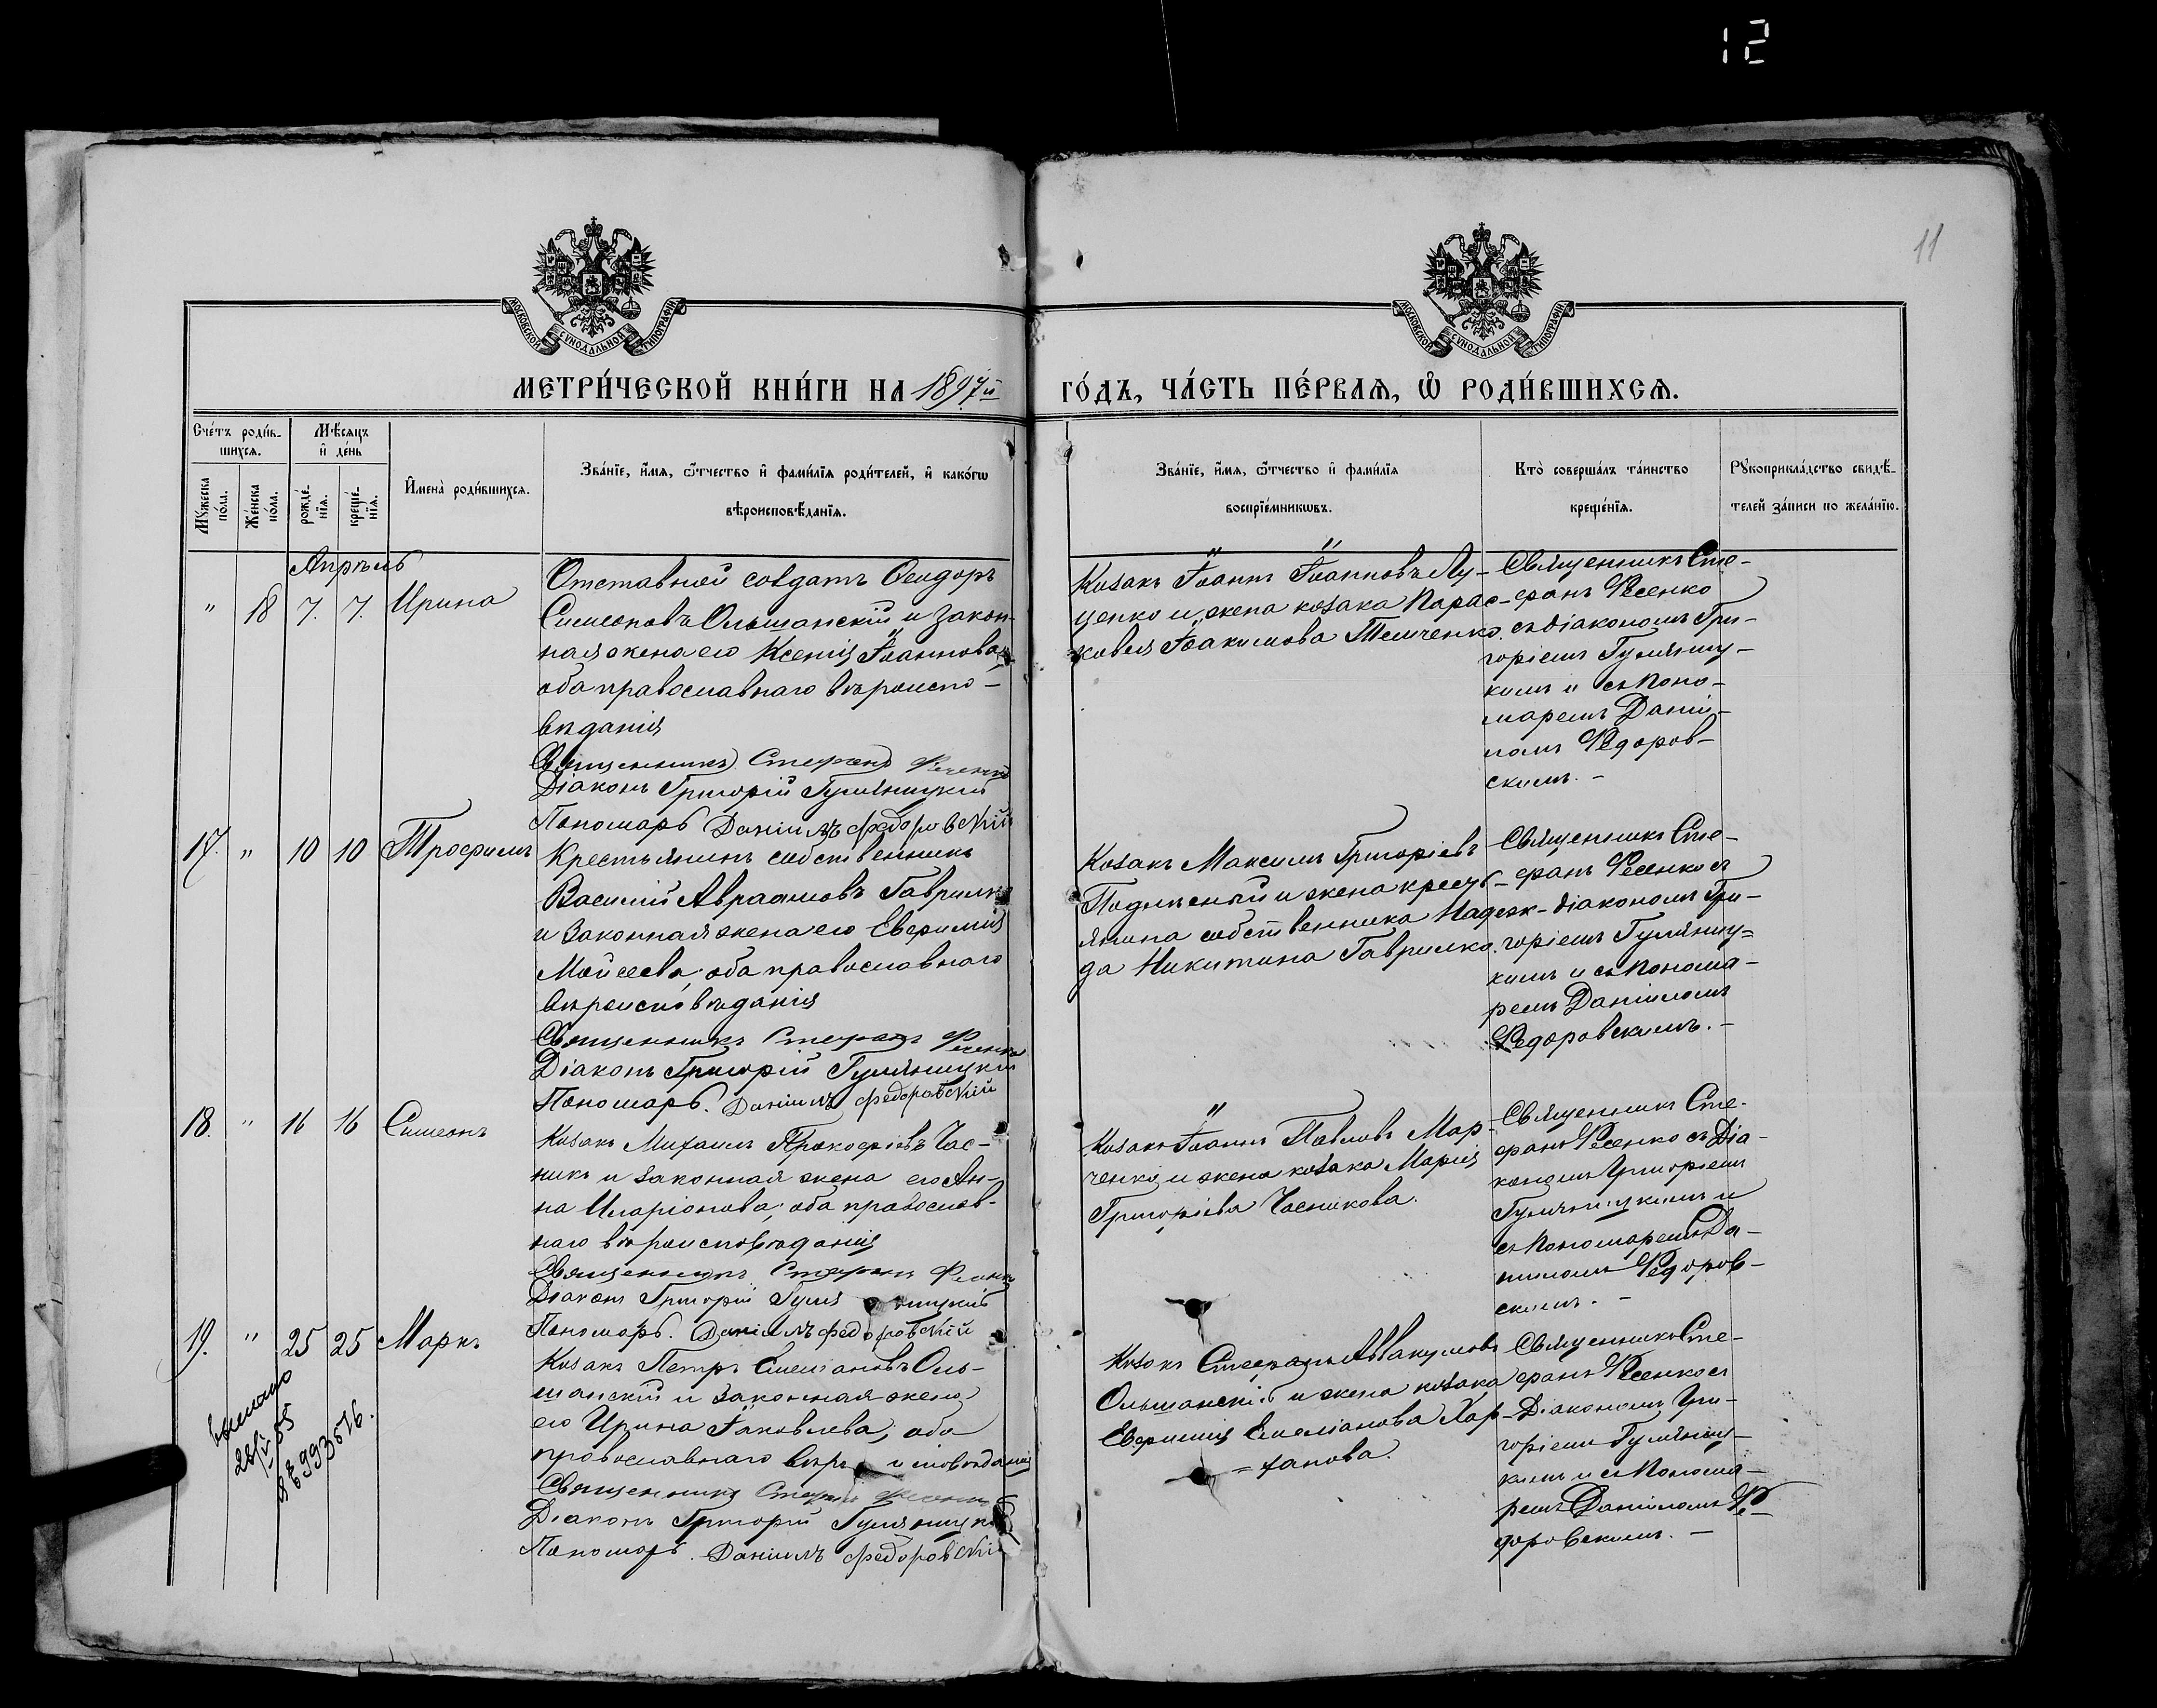 12
11
МОСКОВСКОЙ СѴНОДАЛЬНОЙ ТИПОГРАФІИ
МОСКОВСКОЙ СѴНОДАЛЬНОЙ ТИПОГРАФІИ
МЕТРИ́ЧЕСКОЙ КНИ́ГИ НА 1897й
ГО́ДЪ, ЧА́СТЬ ПЕ́РВАѦ, Ѡ҆ РОДИ́ВШИХСѦ.
Сче́тъ роди́в-
шихсѧ.
Мꙋ́жеска по́ла.
Же́нска по́ла.
Мѣ́сѧцъ
и҆ де́нь
рожде́-
нїѧ.
креще́-
нїѧ.
И҆мена̀ роди́вшихсѧ.
Зва́нїе, и҆́мѧ, ѻ҆́тчество и҆ фами́лїѧ роди́телей, и҆ како́гѡ
вѣроисповѣ́данїѧ.
Зва́нїе, и҆́мѧ, ѻ҆́тчество и҆ фами́лїѧ
воспрїе́мникѡвъ.
Кто̀ соверша́лъ та́инство
креще́нїѧ.
Рꙋкоприкла́дство свидѣ́-
телей за́писи по жела́нїю.
Апрѣль
" 18 7. 7. Ирина
Отставной солдатъ Ѳеодоръ
Симеоновъ Ольшанскій и закон-
ная жена его Ксенія Іоаннова,
оба православнаго вѣроиспо-
вѣданія
Священникъ Стефанъ Фесенко
Діаконъ Григорій Гуляницкій
Пономарь Даніилъ Федоровскій
Козакъ Іоаннъ Іоанновъ Лу-
ценко и жена козака Парас-
ковья Іоакимова Темченко.
Священникъ Сте-
фанъ Фесенко
съ діакономъ Гри-
горіемъ Гуляниц-
кимъ и съ поно-
маремъ Дании-
ломъ Федоров-
скимъ.-
17. " 10 10 Трофимъ
Крестьянинъ собственникъ
Василій Авраамовъ Гаврилко
и законная жена его Евфимія
Мойсеева; оба православнаго
вѣроисповѣданія
Священникъ Стефанъ Фесенко
Діаконъ Григорій Гуляницкій
Пономарь. Даніилъ Федоровскій
Козакъ Максимъ Григорьевъ
и жена кресть-
янина собственника Надеж-
да Никитина Гаврилко.
Священникъ Сте-
фанъ Фесенко съ
діакономъ Гри-
горіемъ Гуляниц=
кимъ и съ понома-
ремъ Даниломъ
Федоровскимъ.-
18. " 16 16 Симеонъ
Козакъ Михаилъ Прокофіевъ Час-
никъ и законная жена его Ан-
на Иларіонова; оба православ-
наго вѣроисповѣданія
Священникъ Стефанъ Фесенко
Діаконъ Григорій Гуляницкій
Пономарь. Даніилъ Федоровскій
Козакъ Іоаннъ Павловъ Мар-
ченко и жена козака Марія
Григоріева Часникова.
Священникъ Сте-
фанъ Фесенко съ Діа-
кономъ Григоріемъ
Гуляницкимъ и
съ пономаремъ Да-
ниломъ Федоров-
скимъ.-
19. " 25 25 Маркъ
Козакъ Петръ Симеоновъ Оль-
шанскій и законная жена
его Ирина Іаковлева; оба
православнаго вѣроисповѣданія
Священникъ Стефанъ Фесенко
Діаконъ Григорій Гуляницкій
Пономарь. Даніилъ Федоровскій
Козакъ Стефанъ Аввакумовъ
Ольшанскій и жена козака
Евфимія Емеліанова Хар-
=ланова.
Священникъ Сте-
фанъ Фесенко съ
Діакономъ Гри-
горіемъ Гуляниц-
кимъ и съ понома-
ремъ Даниломъ Фе-
доровскимъ.-